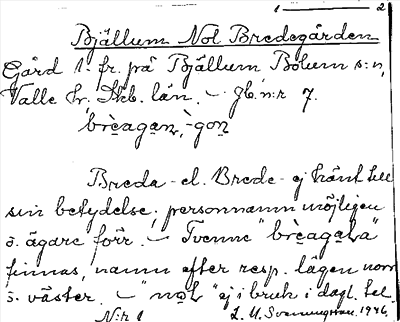 1 — 2
Bjällum Nol Bredegården
Gård 1. fr. på Bjällum Bolum s:n,
Valle hr, Skb. län. — Jb. n:r 7.
brèagan, -gon
Breda- el. Brede- ej känt till
sin betydelse; personnamn möjligen
å ägare förr. — Tvenne "brèagaɳa"
finnas, namn efter resp. lägen norr
o. väster. — "nol" ej i bruk i dagl. tal.
N:r 1 L. M. Svenungsson. 1946.